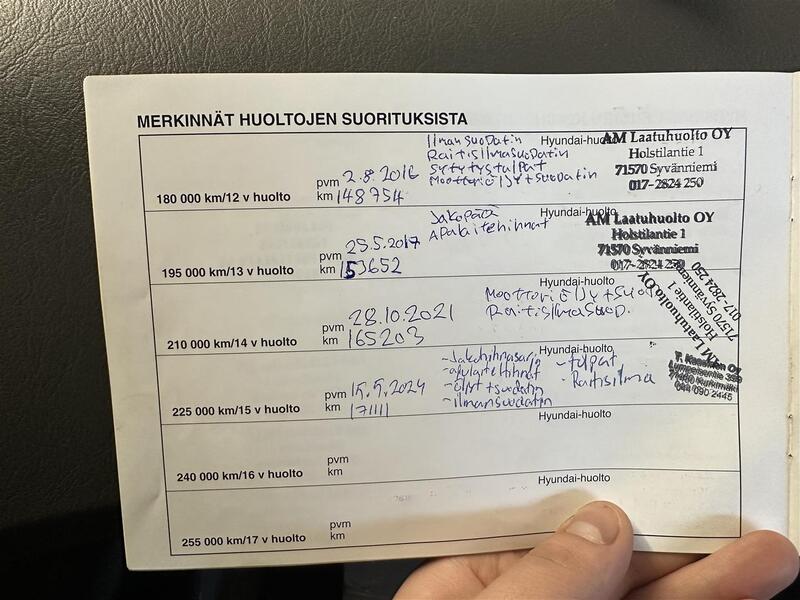 MERKINNÄT HUOLTOJEN SUORITUKSISTA
180 000 km/12 v huolto
pvm 2.8.2016
km 148754
Ilmansuodatin
Raitisilmasuodatin
Sytytystulpat
Moottoriöljy+suodatin
Hyundai-huolto
AM Laatuhuolto OY
Holstilantie 1
71570 Syvänniemi
017-2824 250
195 000 km/13 v huolto
pvm 25.5.2017
km 153652
Jakopää
Apulaitehihnat
Hyundai-huolto
AM Laatuhuolto OY
Holstilantie 1
71570 Syvänniemi
017-2824 250
210 000 km/14 v huolto
pvm 28.10.2021
km 165203
Moottoriöljy+suod
Raitisilmasuod.
Hyundai-huolto
AM Laatuhuolto OY
Holstilantie 1
71570 Syvänniemi
017-2824 250
225 000 km/15 v huolto
pvm 15.5.2024
km 171111
-Jakohihnasarja
-apulaitehihnat
-öljyt+suodatin
-ilmansuodatin
-tulpat
-Raitisilma
Hyundai-huolto
044 090 2445
240 000 km/16 v huolto
pvm
km
Hyundai-huolto
255 000 km/17 v huolto
pvm
km
Hyundai-huolto